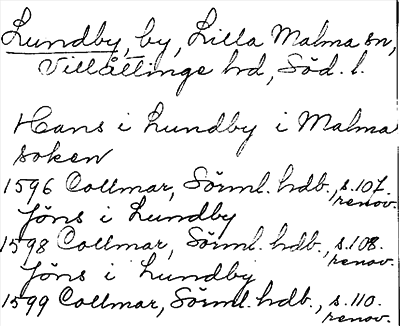 Lundby, by, Lilla Malma sn,
Villåttinge hd, Söd. l.
Hans i Lundby i Malma
soken
1596 Collmar, Sörml. hdb., s. 107.
renov.
Jöns i Lundby
1598 Collmar, Sörml. hdb., s. 108.
renov.
Jöns i Lundby
1599 Collmar, Sörml. hdb., s. 110.
renov.